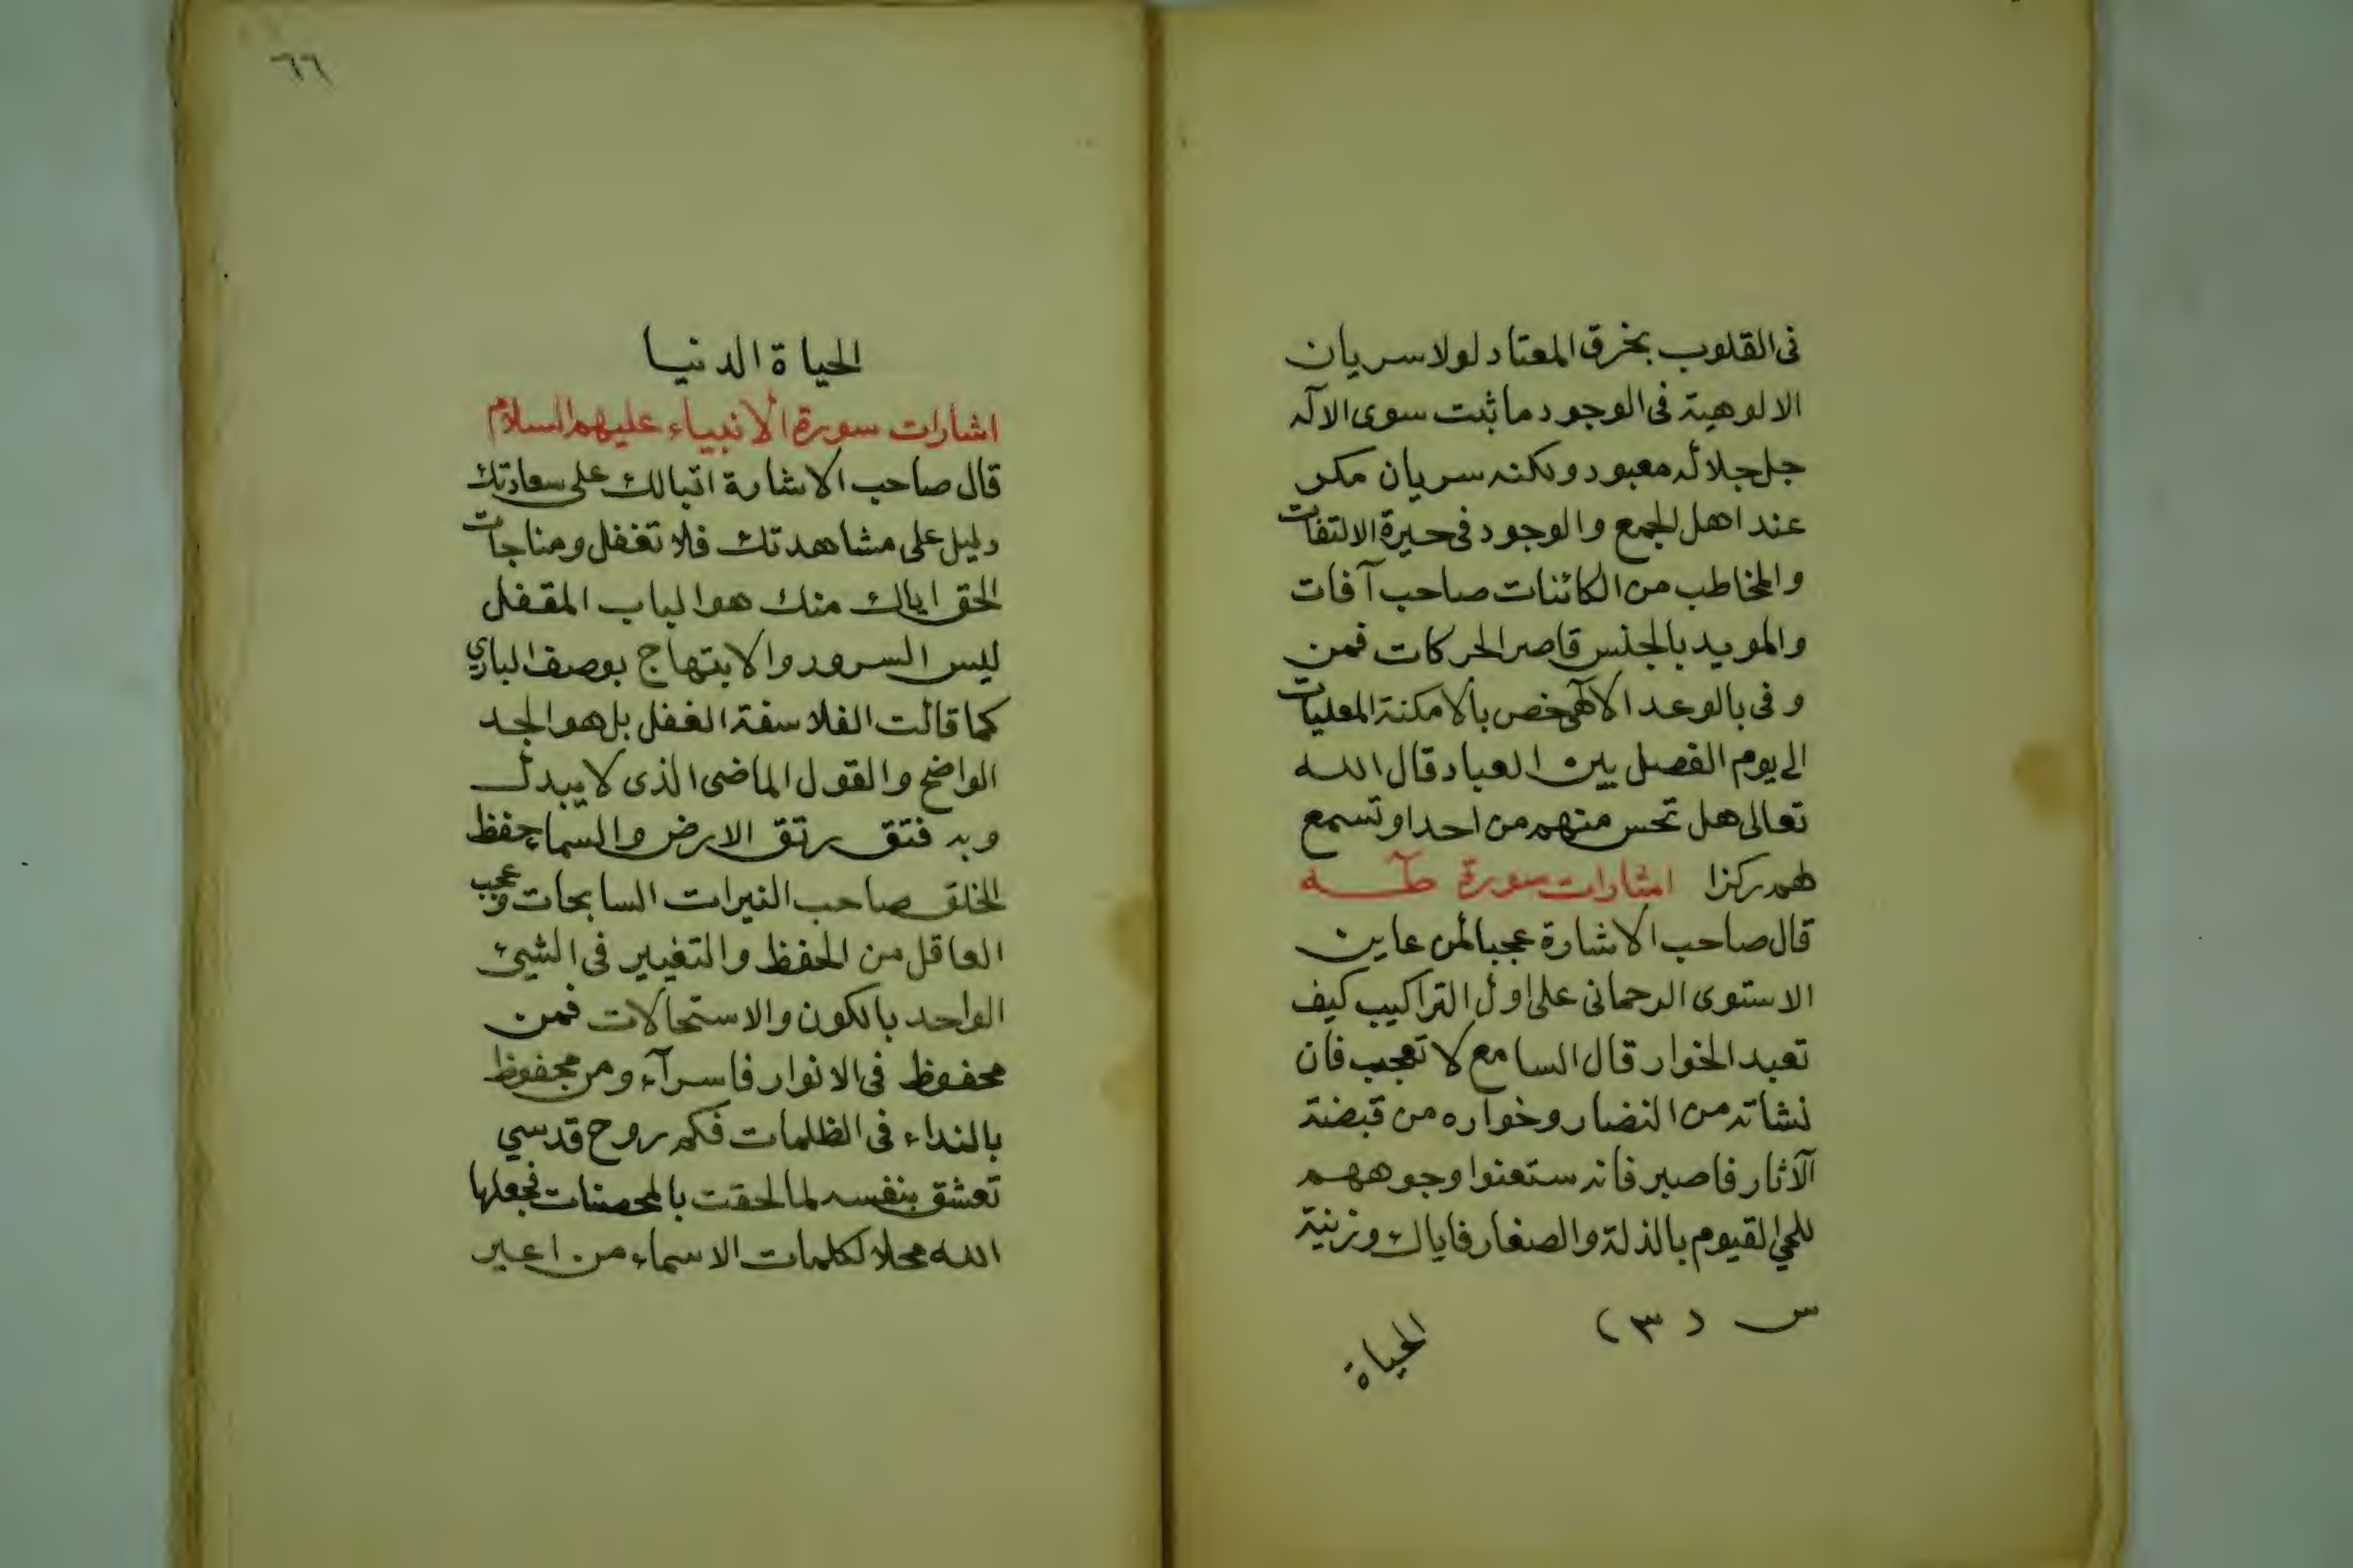 فى القلوب بخرق المعتاد لولا سريان
الالوهية فى الوجود ما ثبت سوى الاله
جل جلاله معبود ولكنه سريان مكر
عند اهل الجمع والوجود فى حيرة الالتفات
والمخاطب من الكائنات صاحب آفات
والمويد بالجنس قاصر الحركات فمن
وفى بالوعد الالهى خص بالامكنة المعليات
الى يوم الفصل بين العباد قال الله
تعالى هل تحس منهم من احد او تسمع
لهم ركزا اشارات سورة طه
قال صاحب الاشارة عجبا لمن عاين
الاستوى الرحمانى على اول التراكيب كيف
تعبد الخوار قال السامع لا تعجب فان
نشاته من النضار وخواره من قبضة
الآثار فاصبر فانه ستعنوا وجوههم
للحي القيوم بالذلة والصغار فاياك وزنية
س (٣)
الحياة
٦٦
الحياة الدنيا
اشارات سورة الانبياء عليهم السلام
قال صاحب الاشارة اتبالك على سعادتك
دليل على مشاهدتك فلا تغفل ومناجات
الحق اياك منك هو الباب المقفل
ليس السرور والابتهاج بوصف الباري
كما قالت الفلاسفة الغفل بل هو الجد
الواضح والقول الماضى الذى لا يبدل
وبه فتق رتق الارض والسما حفظ
الخلق صاحب النيرات السابحات وعجب
العاقل من الحفظ والتغيير فى الشيئ
الواحد بالكون والاستحالات فمن
محفوظ فى الانوار فاسرآء ومن محفوظ
بالنداء فى الظلمات فكم روح قدسي
تعشق بنفسه لما لحقت بالمحصنات فجعلها
الله محلا لكلمات الاسماء من اعبر